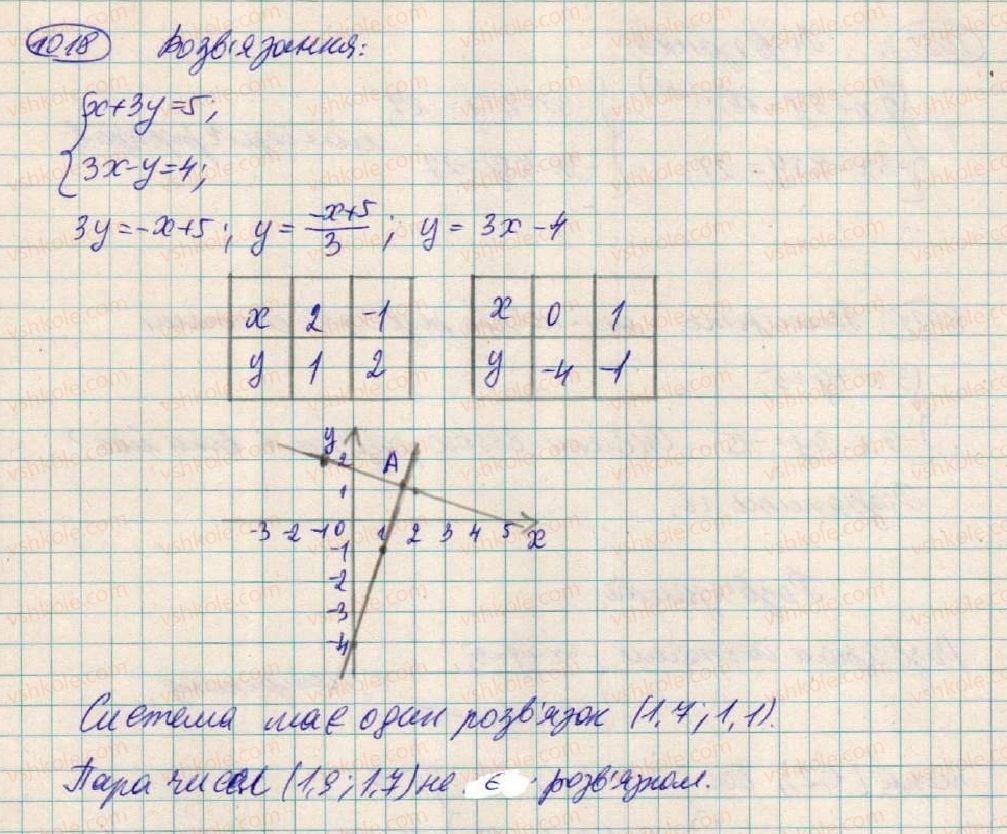 1018 Розв'язання:
{x+3y=5;
3x-y=4;
3y=-x+5; y=(-x+5)/3; y=3x-4
x 2 -1
y 1 2
x 0 1
y -4 -1
y
2
A
1
-3 -2 -1 0 1 2 3 4 5 x
-1
-2
-3
-4
Система має один розв'язок (1,7; 1,1).
Пара чисел (1,9; 1,7) не є розв'язком.